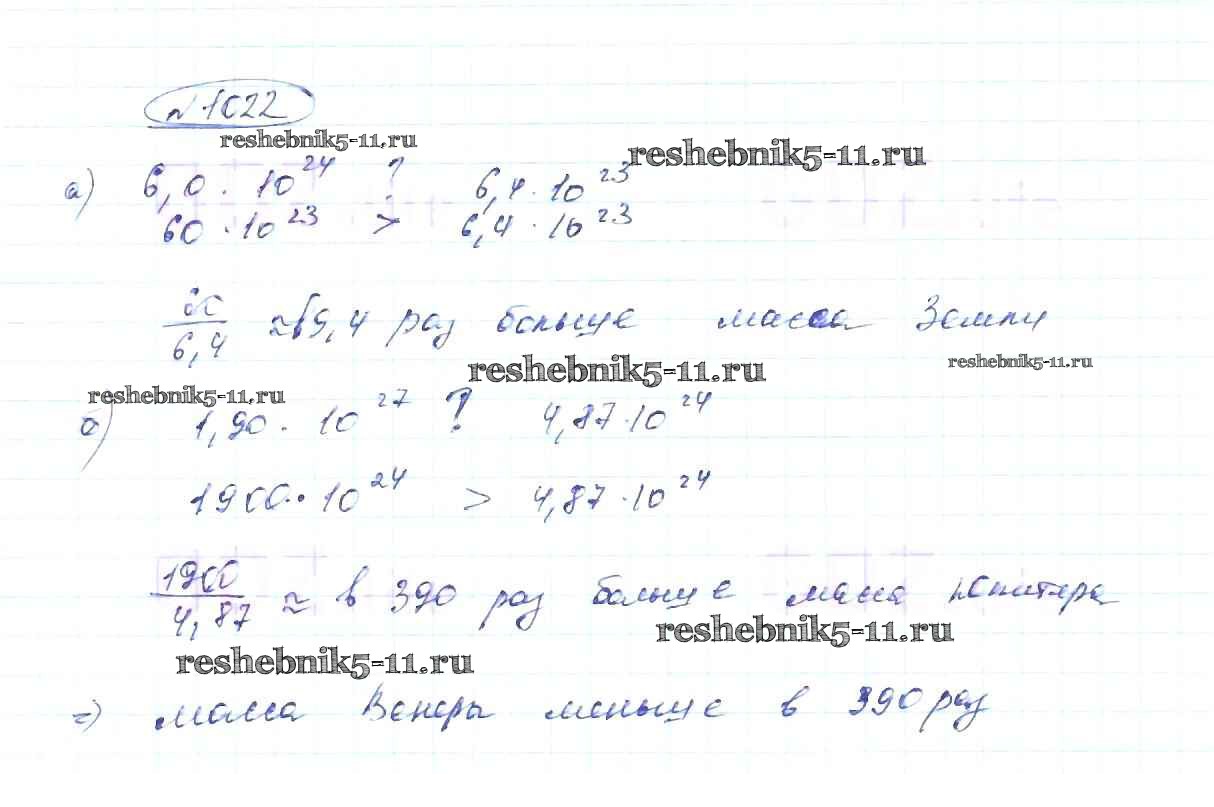 №1022
reshebnik5-11.ru
reshebnik5-11.ru
а) 6,0 · 10²⁴ ? 6,4 · 10²³
60 · 10²³ > 6,4 · 10²³
60/6,4 ≈ 9,4 раз больше масса Земли
reshebnik5-11.ru
reshebnik5-11.ru
reshebnik5-11.ru
б) 1,90 · 10²⁷ ? 4,87 · 10²⁴
1900 · 10²⁴ > 4,87 · 10²⁴
1900/4,87 ≈ в 390 раз больше масса Юпитера
reshebnik5-11.ru
reshebnik5-11.ru
=) масса Венеры меньше в 390 раз